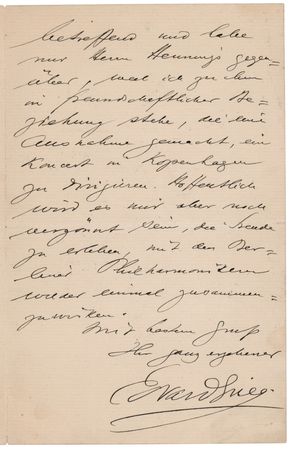 betreffend und habe
nur Herrn Hennings gegen=
über, weil ich zu ihm
in freundschaftlicher Be=
ziehung stehe, die eine
Ausnahme gemacht, ein
Konzert in Kopenhagen
zu dirigieren. Hoffentlich
wird es mir aber noch
vergönnt sein, die Freude
zu erleben, mit den Ber=
liner Philharmonikern
wieder einmal zusammen=
zuwirken.
Mit bestem Gruß
Ihr ganz ergebener
Edvard Grieg